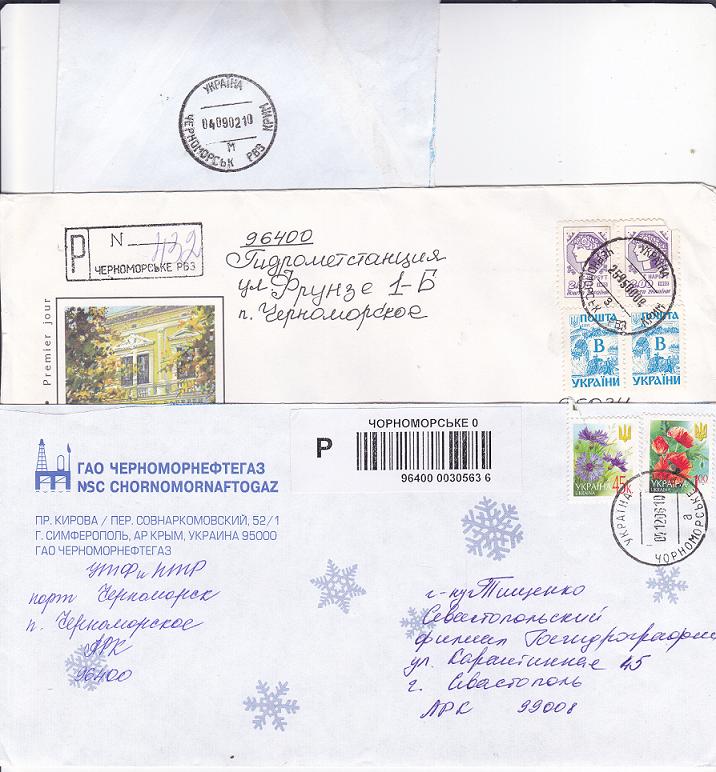 УКРАЇНА
04090210
М
ЧЕРНОМОРСЬК РВЗ КРИМ
Р
N 432
ЧЕРНОМОРСЬКЕ РВЗ
96400
Гидрометстанция
ул Фрунзе 1-Б
п. Черноморское
Premier jour
ПОШТА
В
УКРАЇНИ
ПОШТА
В
УКРАЇНИ
ЧОРНОМОРСЬКЕ 0
Р
96400 0030563 6
УКРАЇНА
UKRAINE
45к.
УКРАЇНА
UKRAINE
1.00
УКРАЇНА
ЧОРНОМОРСЬКЕ
а
ГАО ЧЕРНОМОРНЕФТЕГАЗ
NSC CHORNOMORNAFTOGAZ
ПР. КИРОВА / ПЕР. СОВНАРКОМОВСКИЙ, 52/1
Г. СИМФЕРОПОЛЬ, АР КРЫМ, УКРАИНА 95000
ГАО ЧЕРНОМОРНЕФТЕГАЗ
порт Черноморск
п. Черноморское
АРК
96400
г-ну Тищенко
Севастопольский
филиал Госгидрографии
ул. Карантинная 45
г. Севастополь
АРК 99008